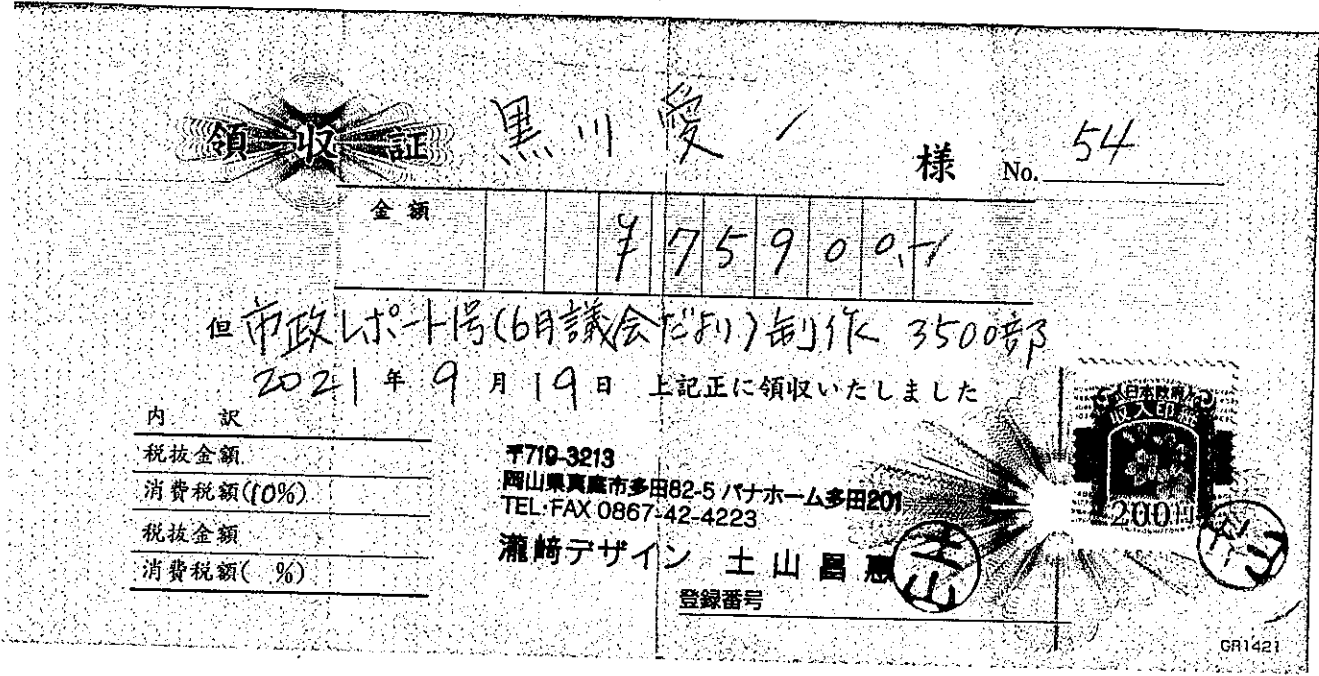 領収証 黒川愛 様 No. 54
金額 ¥75900,-
但 市政レポート号(6月議会だより)制作 3500部
2021年9月19日 上記正に領収いたしました
内 訳
税抜金額
消費税額(10%)
税抜金額
消費税額( %)
〒719-3213
岡山県真庭市多田82-5 パナホーム多田201
TEL・FAX 0867-42-4223
瀧﨑デザイン 土山昌恵
土山
登録番号
日本政府
収入印紙
200円
土山
GR1421